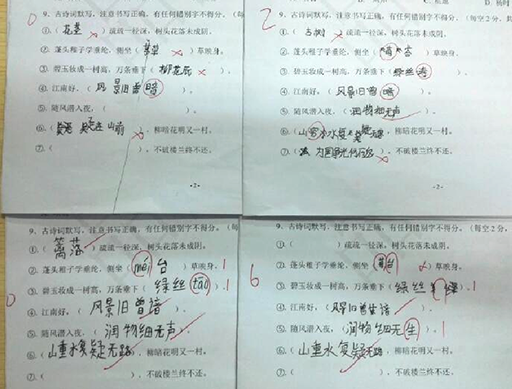 0
9、古诗词默写，注意书写正确，有任何错别字不得分。（每
①、（花茎）疏疏一径深，树头花落未成阴。
②、蓬头稚子学垂纶，侧坐（）草映身。
③、碧玉妆成一树高，万条垂下（柳花瓜）。
④、江南好，（风景旧曾暗
⑤、随风潜入夜，（
⑥、（山前），柳暗花明又一村。
⑦、（），不破楼兰终不还。
-2-
2
9、古诗词默写，注意书写正确，有任何错别字不得分。（每空2分，共
①、（古树）疏疏一径深，树头花落未成阴。
②、蓬头稚子学垂纶，侧坐（杏）草映身。
③、碧玉妆成一树高，万条垂下（绿丝）。
④、江南好，（风景旧曾暗）。
⑤、随风潜入夜，（润物细无声）。
⑥、（山穷水复无路），柳暗花明又一村。
⑦、（为国争光），不破楼兰终不还。
-2-
0
9、古诗词默写，注意书写正确，有任何错别字不得分。（每
①、（篱落）疏疏一径深，树头花落未成阴。
②、蓬头稚子学垂纶，侧坐（méi台）草映身。1
③、碧玉妆成一树高，万条垂下（绿丝tāo）。1
④、江南好，（风景旧曾谙
⑤、随风潜入夜，（润物细无声）
⑥、（山重水复疑无路），柳暗花明又一村。
⑦、（），不破楼兰终不还。
6
9、古诗词默写，注意书写正确，有任何错别字不得分。（每空2分，
①、（）疏疏一径深，树头花落未成阴。
②、蓬头稚子学垂纶，侧坐（台）草映身。1
③、碧玉妆成一树高，万条垂下（绿丝）。1
④、江南好，（风景旧曾谙）。
⑤、随风潜入夜，（润物细无生）。1
⑥、（山重水复疑无路），柳暗花明又一村。
⑦、（），不破楼兰终不还。